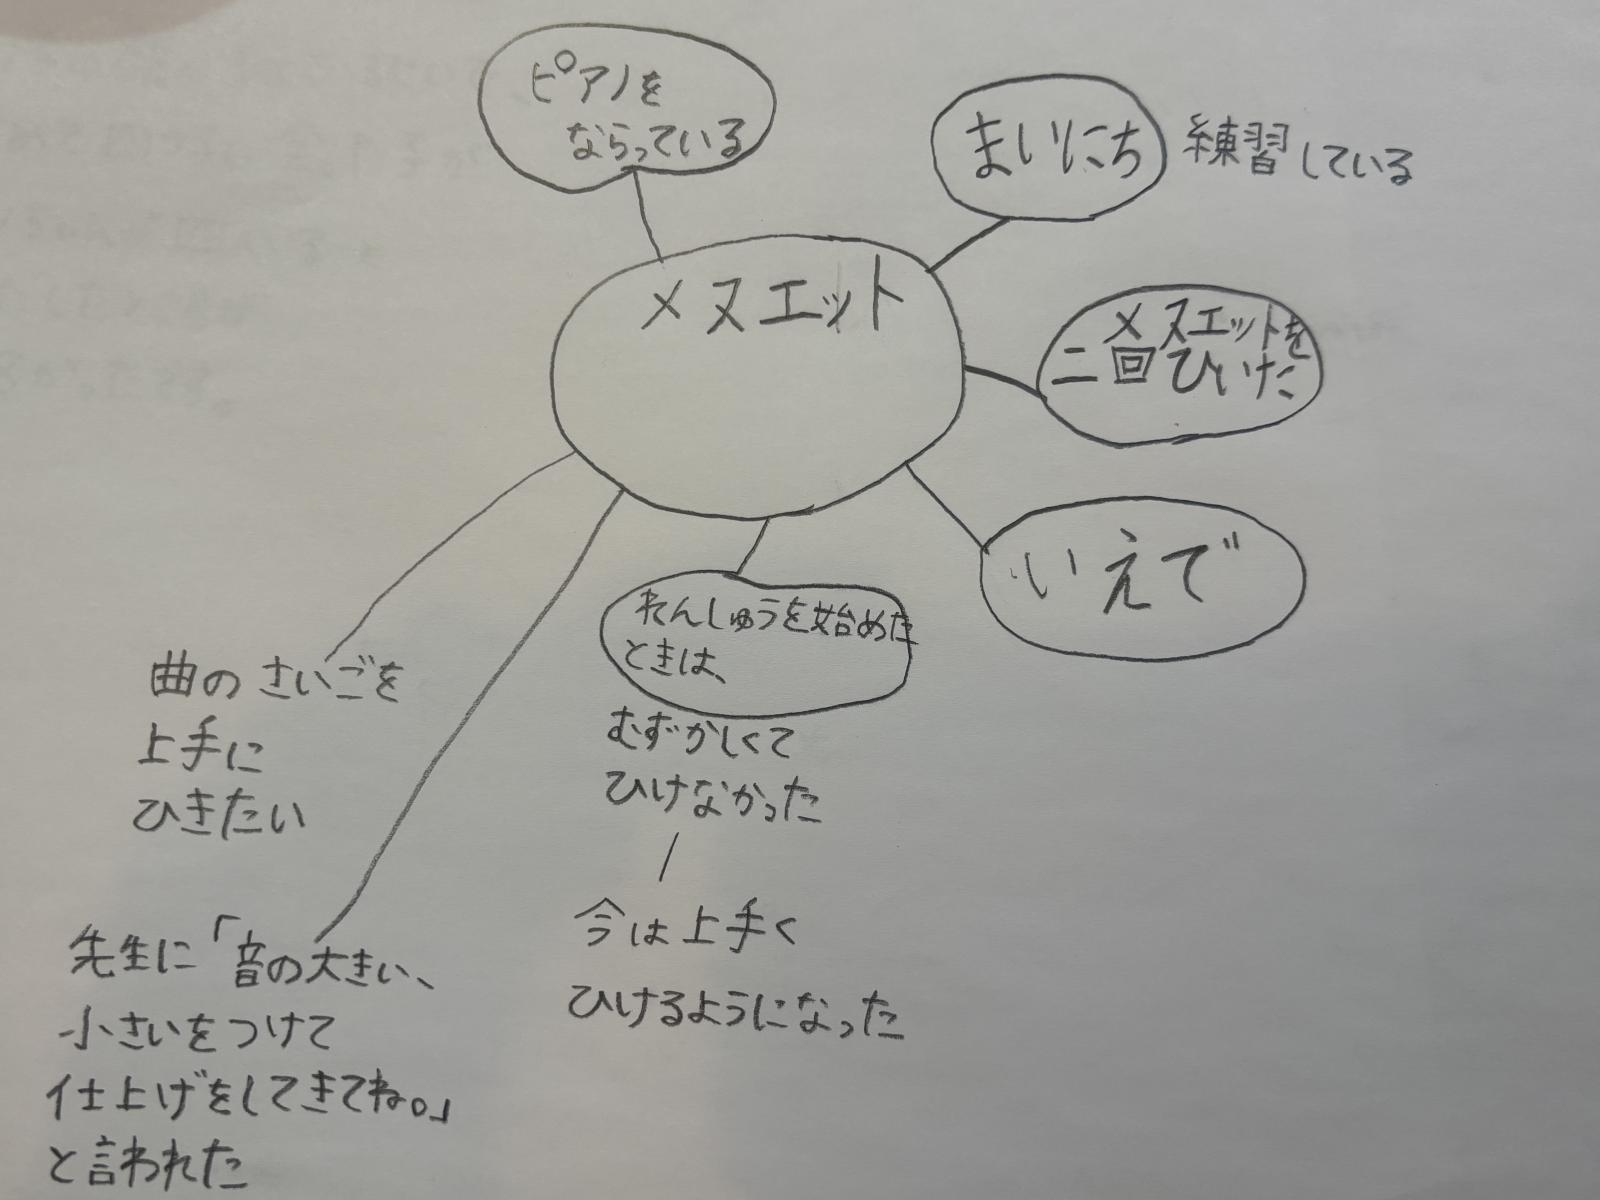 ピアノを
ならっている
まいにち 練習している
メヌエット
メヌエットを
二回ひいた
いえで
れんしゅうを始めた
ときは、
むずかしくて
ひけなかった
今は上手く
ひけるようになった
曲のさいごを
上手に
ひきたい
先生に「音の大きい、
小さいをつけて
仕上げをしてきてね。」
と言われた